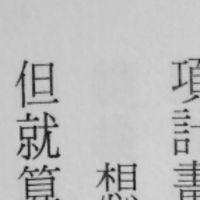 項計畫
想
但就算